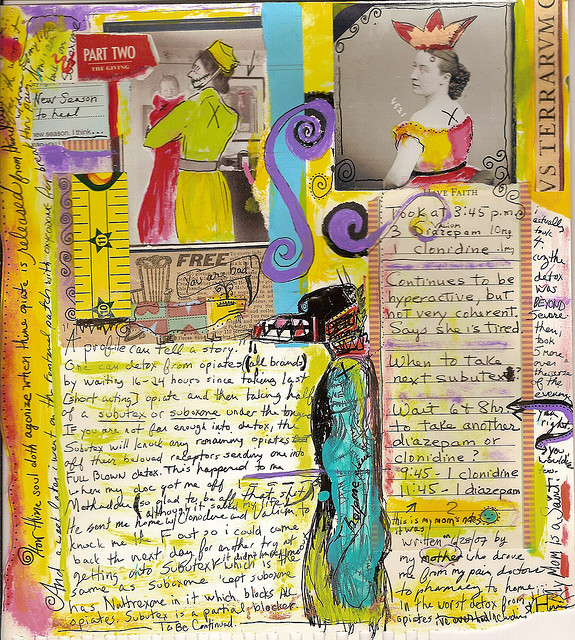 PART TWO
THE GIVING
New Season
to heal
new season. I think...
VS TERRARVM
FREE
You are bad.
HAVE FAITH
Took at 3:45 p.m.
3 diazepam 10mg
1 clonidine .1m
Continues to be
hyperactive, but
not very coherent.
Says she's tired
When to take
next subutex?
Wait 6 + 8 hrs
to take another
diazepam or
clonidine?
9:45 - 1 clonidine
11:45 - 1 diazepam
this is my mom's notes
it was
written
by
my mother who drove
me from my pain doctors
to pharmacy to home
in the worst detox from
opiates
actually
took
4.
cuz the
detox
was
BEYOND
Severe
then i
took
5 more
over
the course
of the
evening
right
you
too.
My MOM is a Saint!
A profile can tell a story.
One can detox from opiates (all brands)
by waiting 16-24 hours since taking last
[short acting] opiate and then taking half
of a subutex or suboxone under the tongue
IF you are not far enough into detox, the
Subutex will knock any remaining opiates
off their beloved receptors sending one into
FULL BLOWN detox. This happened to me
when my doc got me off
Methadone (so glad to be off that shit
although it saved my life)
He sent me home w/ Clonodine and Valium to
knock me the F out so i could come
back the next day for another try at
getting onto Subutex which is
it didn't
same as Suboxone cept suboxone
has Naltrexone in it which blocks ALL
opiates. Subutex is a partial blocker.
To Be Continued.
For thine soul doth agonize when thine opiate is released from
And a week later i went on the Fentanyl patch with oxycodone for